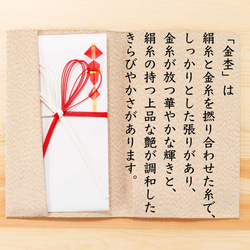 「金杢」は
絹糸と金糸を撚り合わせた糸で、
しっかりとした張りがあり、
金糸が放つ華やかな輝きと、
絹糸の持つ上品な艶が調和した
きらびやかさがあります。